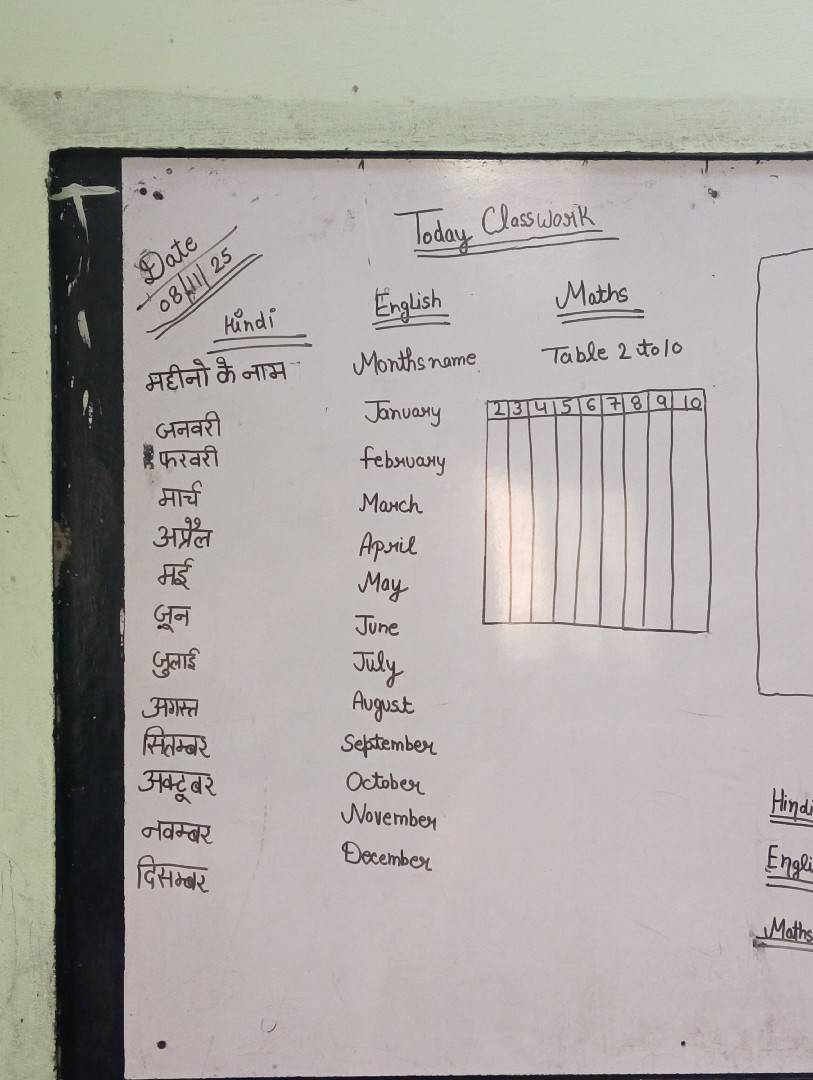 Today Classwork
Date
08/11/25
Hindi
महीनो के नाम
जनवरी
फरवरी
मार्च
अप्रैल
मई
जून
जुलाई
अगस्त
सितम्बर
अक्टूबर
नवम्बर
दिसम्बर
English
Months name
January
february
March
April
May
June
July
August
September
October
November
December
Maths
Table 2 to 10
2 3 4 5 6 7 8 9 10
Hindi
Engli
Maths